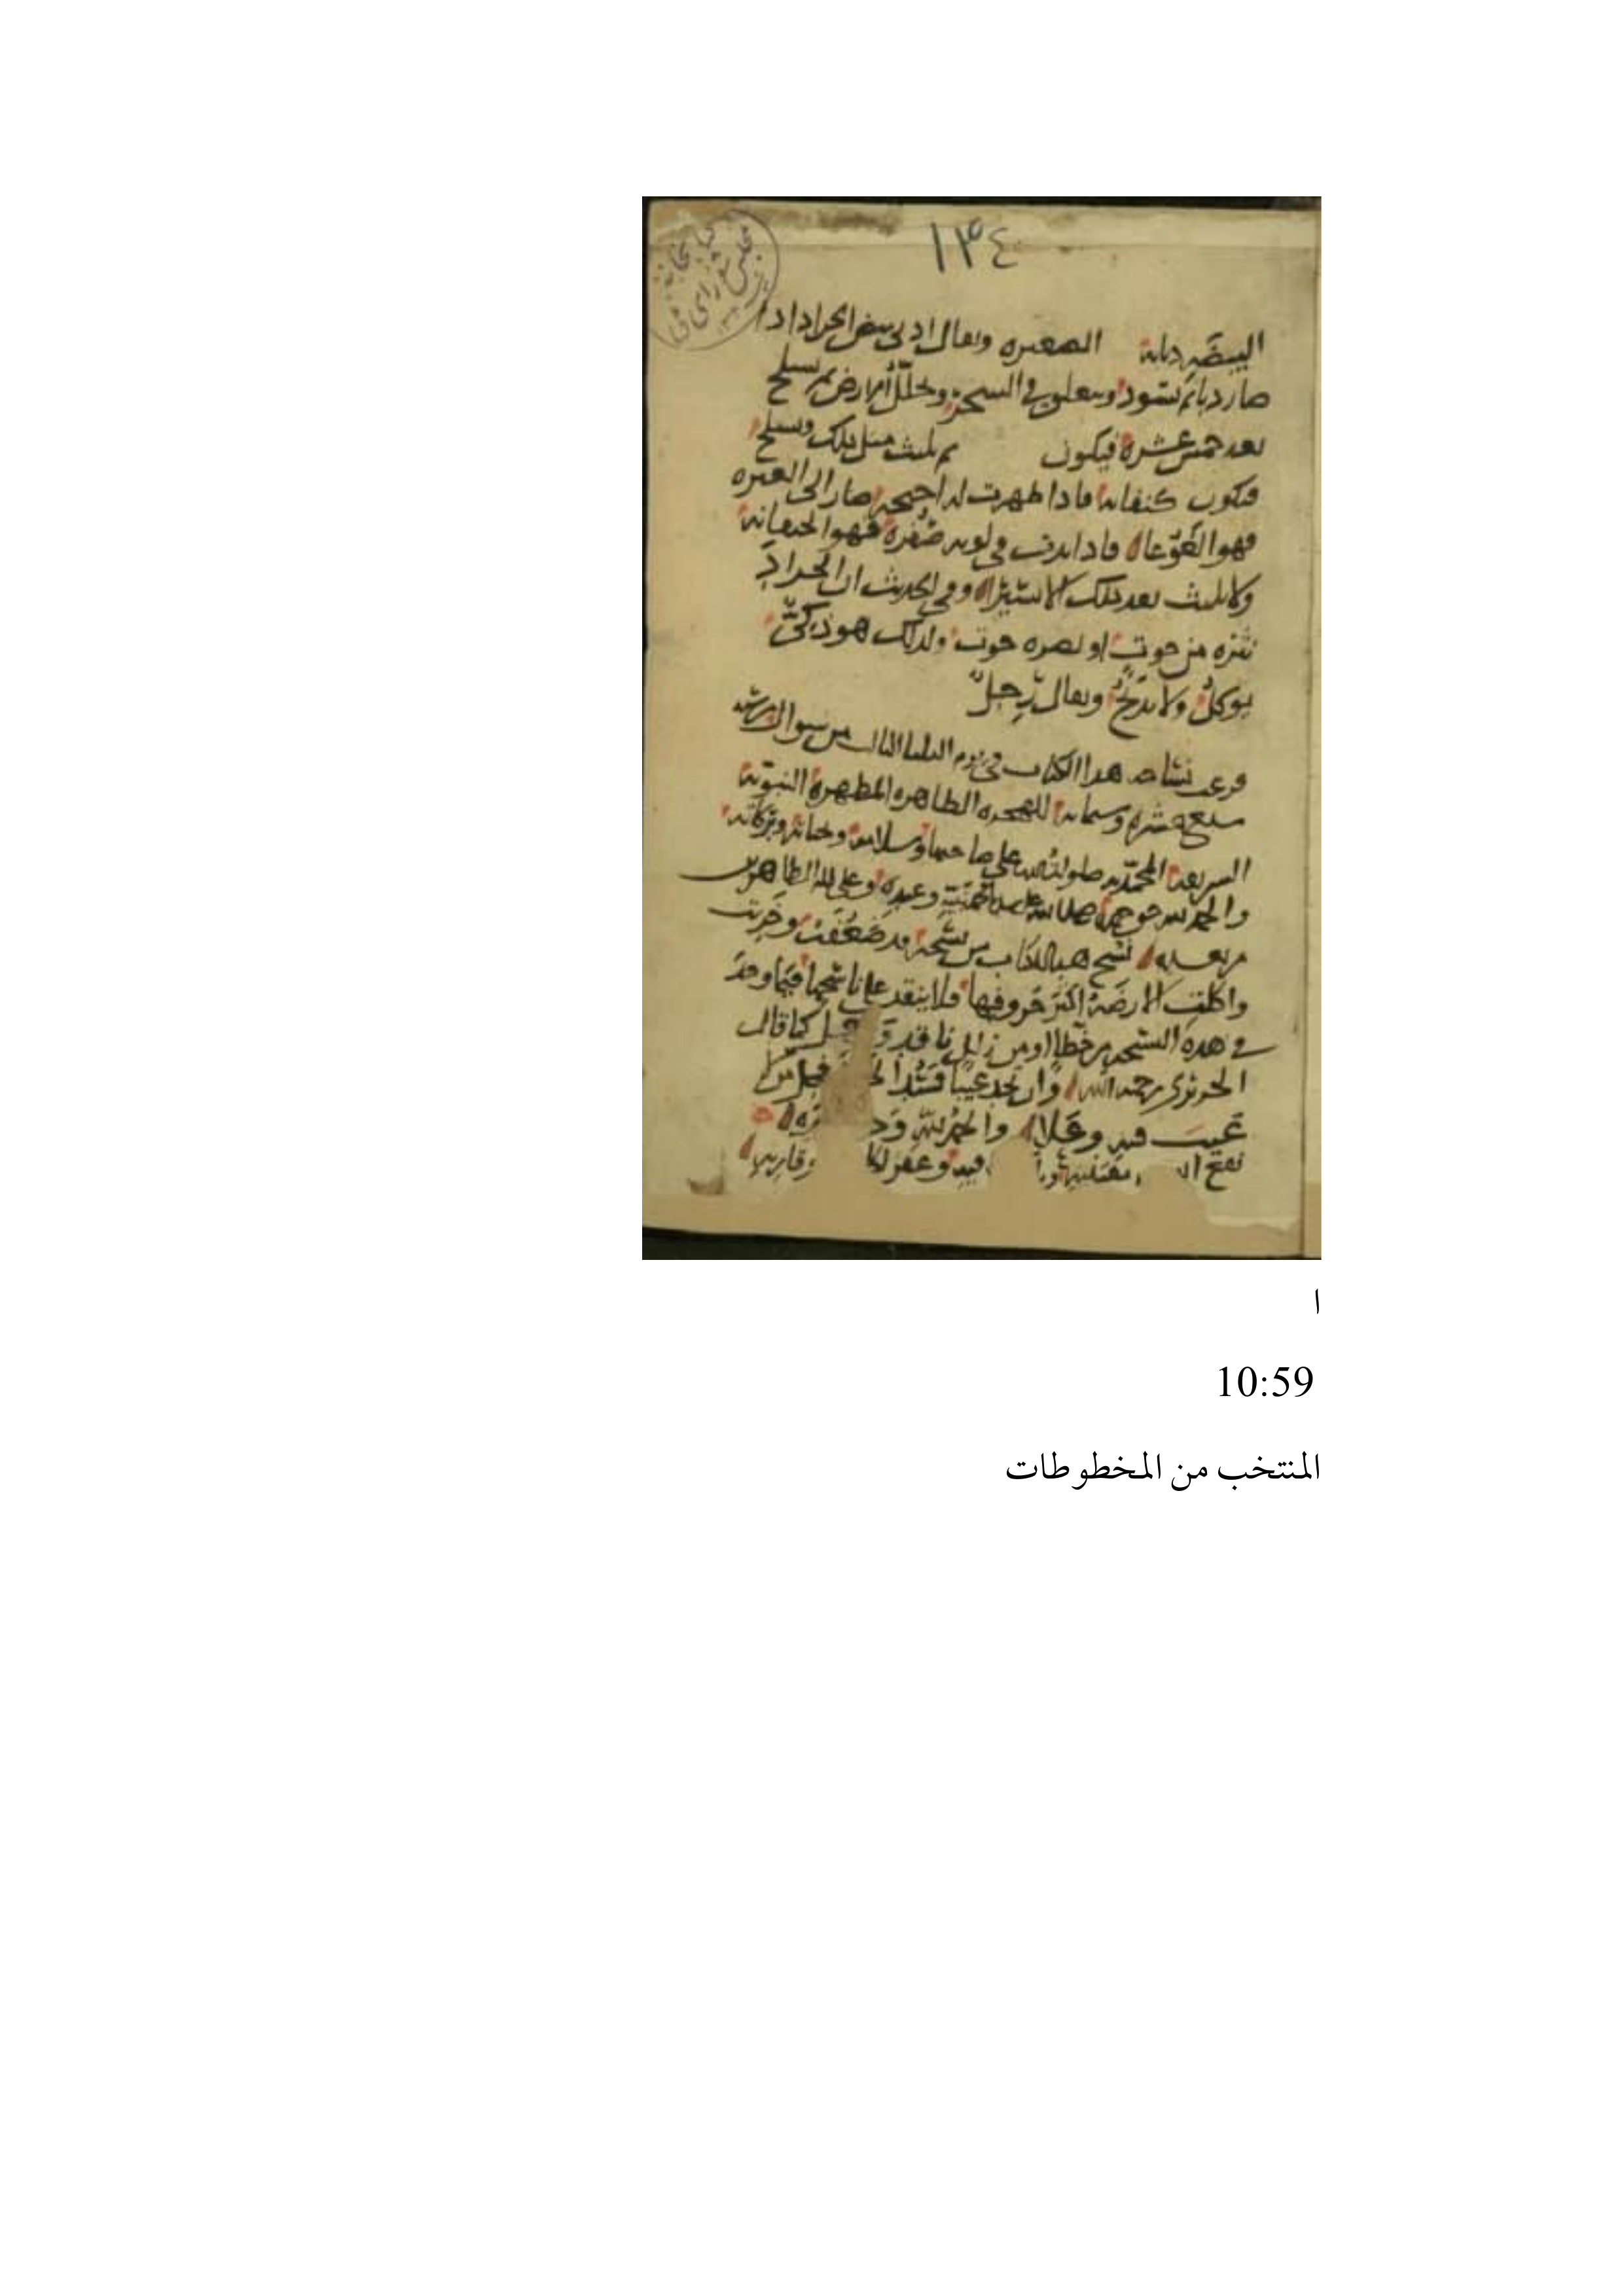 ١٣٤
البيضه دبابة الصغيره ويقال ادبى بيض الجراد اذا
صار دبا ثم تسود ويتعلق في الشجر ويحلل الارض ثم يسلخ
بعد خمس عشرة فيكون ثم يلبث مثل ذلك ويسلخ
فيكون كتفانة فاذا ظهرت له اجنحة صار الى الغبره
فهو الغوغا فاذا بدت في لونه صفره فهو الخيفانة
ولا يلبث بعد ذلك الا يسيرا وفي الحديث ان الجراد
نثره من حوت او نصره حوت ولذلك هو ذكي
يوكل ولا يذبح ويقال رجل
فرغت نساخه هذا الكتاب في يوم الثلثا الثالث من شوال من شهر
سبع عشره وستمايه للهجره الطاهره المطهرة النبويه
الشريعه المحمديه صلوات الله على صاحبها وسلامه وتحياته وبركاته
والحمد لله حق حمده وصلى الله على وعبده وعلى اله الطاهرين
من بعده نسخ هذا الكتاب من نسخة قد ضعفت وخربت
واكلت الارضة اكثر حروفها فلا ينقد على ناسخها فيما وجد
في هذه النسخه من خطا او من زلل كما قال
الحريري رحمه الله وان تجد عيبا فسد الخ فجل من لا
عيب فيه وعلا والحمد لله وحد
نفع الله فيه وغفر لكا وقاريه
ا
10:59
المنتخب من المخطوطات